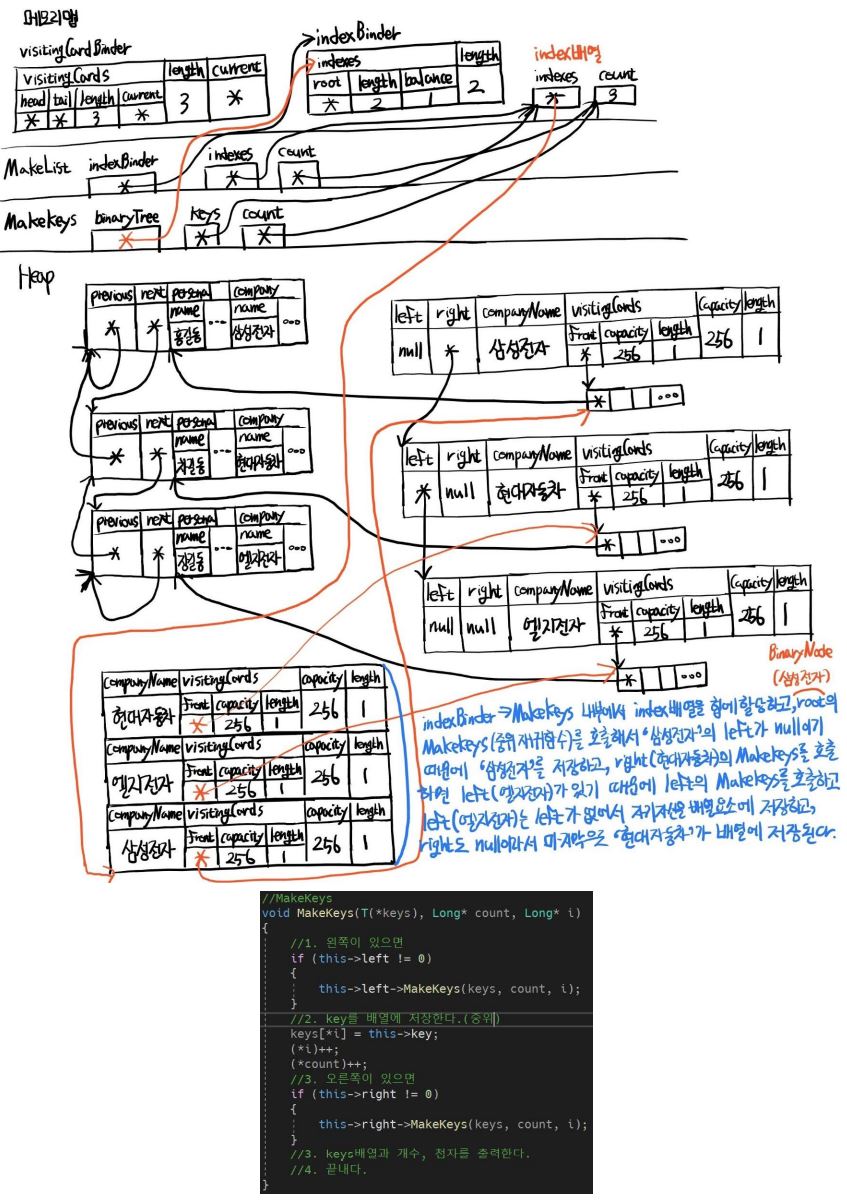 메모리맵
visitingCardBinder
visitingCards length current
head tail length current
* * 3 * 3 *
indexBinder
indexes length
root length balance
* 2 1 2
index배열
indexes count
* 3
MakeList indexBinder indexes count
* * *
MakeKeys binaryTree keys count
* * *
Heap
previous next personal company
name name
* * 홍길동 ... 삼성전자 ...
previous next personal company
name name
* * ... 현대자동차 ...
previous next personal company
name name
* * ... 엘지전자 ...
left right companyName visitingCards capacity length
front capacity length
null * 삼성전자 * 256 1 256 1
* ...
left right companyName visitingCards capacity length
front capacity length
* null 현대자동차 * 256 1 256 1
* ...
left right companyName visitingCards capacity length
front capacity length
null null 엘지전자 * 256 1 256 1
* ...
companyName visitingCards capacity length
front capacity length
현대자동차 * 256 1 256 1
companyName visitingCards capacity length
front capacity length
엘지전자 * 256 1 256 1
companyName visitingCards capacity length
front capacity length
삼성전자 * 256 1 256 1
BinaryNode
(삼성전자)
indexBinder → MakeKeys 내부에서 index배열을 힙에 할당하고, root의
MakeKeys(중위 재귀함수)를 호출해서 '삼성전자'의 left가 null이기
때문에 '삼성전자'를 저장하고, right(현대자동차)의 MakeKeys를 호출
하면 left(엘지전자)가 있기 때문에 left의 MakeKeys를 호출하고
left(엘지전자)는 left가 없어서 자기자신을 배열요소에 저장하고,
right도 null이라서 마지막으로 '현대자동차'가 배열에 저장된다.
//MakeKeys
void MakeKeys(T(*keys), Long* count, Long* i)
{
//1. 왼쪽이 있으면
if (this->left != 0)
{
this->left->MakeKeys(keys, count, i);
}
//2. key를 배열에 저장한다.(중위)
keys[*i] = this->key;
(*i)++;
(*count)++;
//3. 오른쪽이 있으면
if (this->right != 0)
{
this->right->MakeKeys(keys, count, i);
}
//3. keys배열과 개수, 첨자를 출력한다.
//4. 끝내다.
}